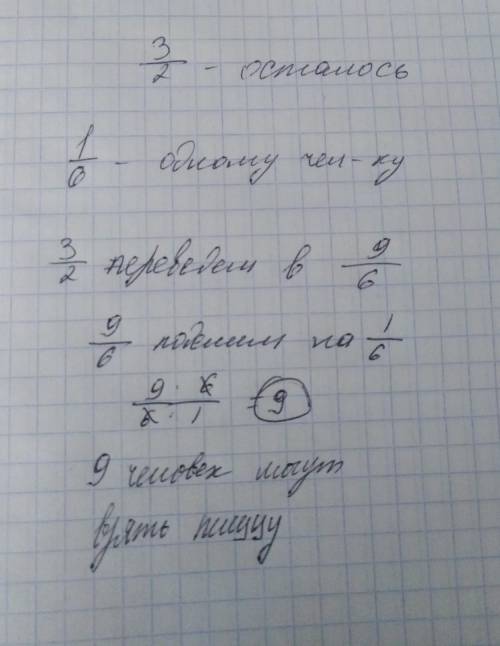 3/2 - осталось
1/6 - одному чел-ку
3/2 переведем в 9/6
9/6 поделим на 1/6
9 · 6 / 6 · 1 = 9
9 человек могут
взять пиццу